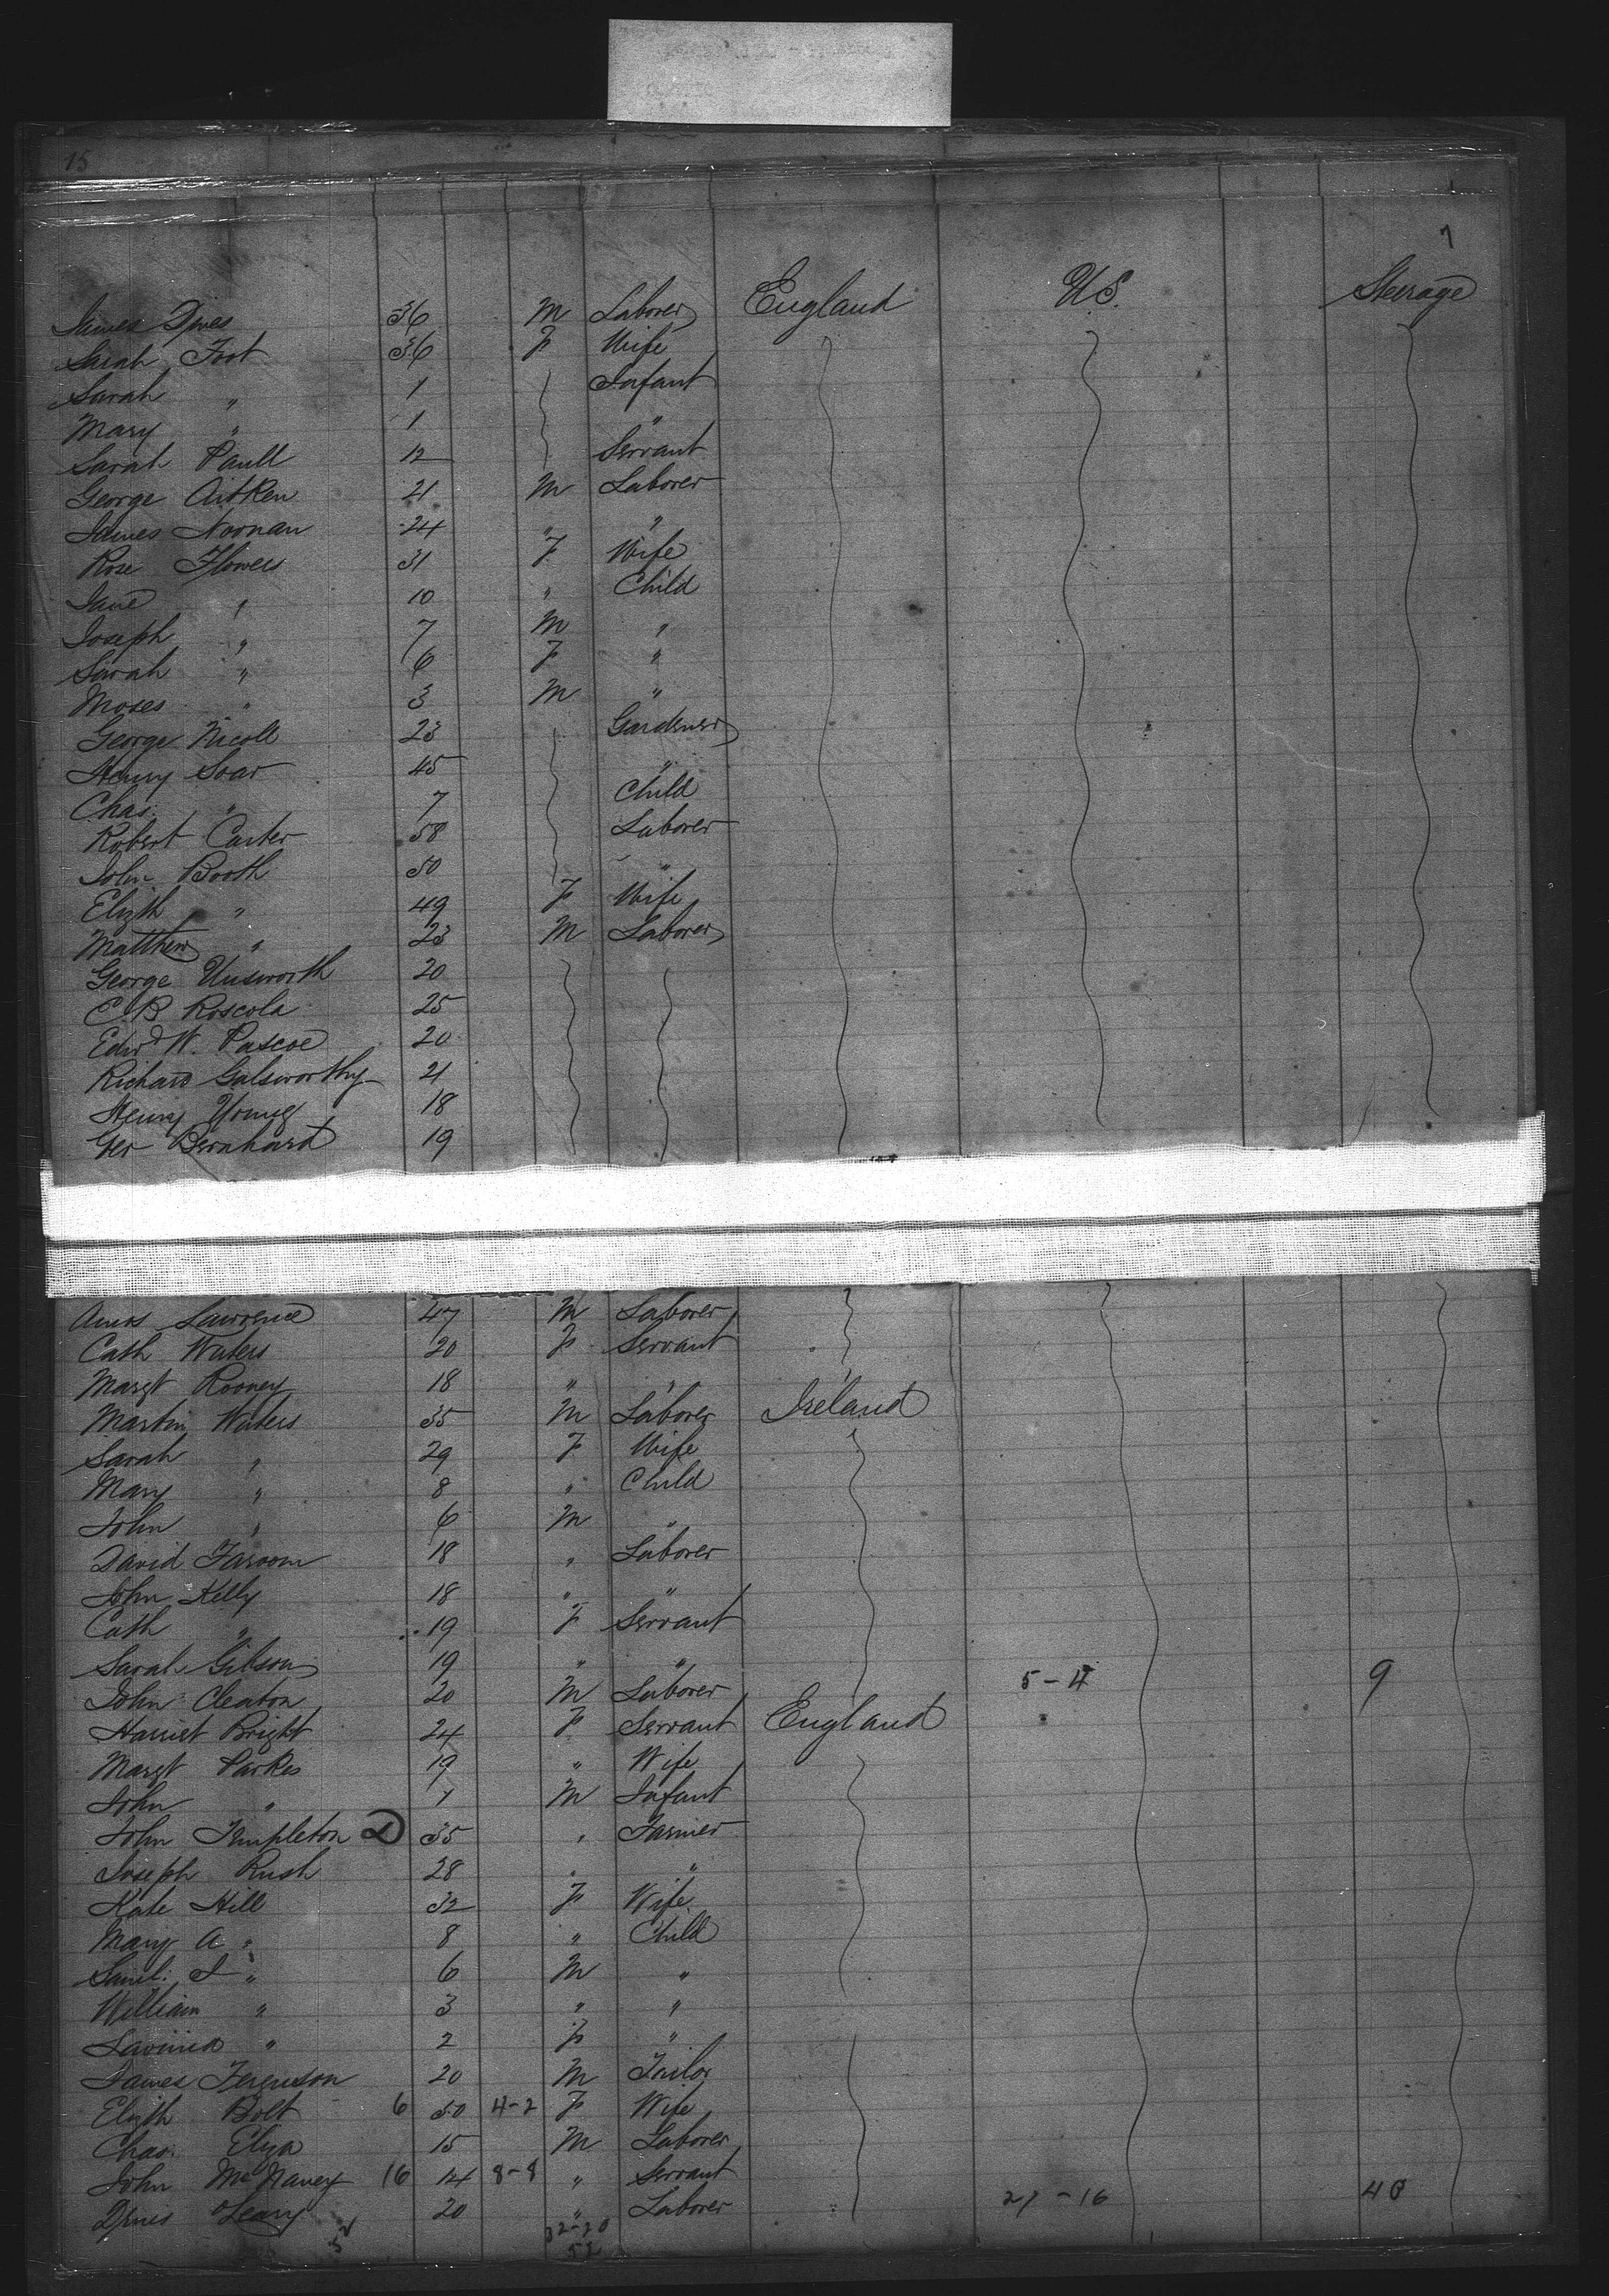 15
7
James Dyves 36 M Laborer England U.S. Steerage
Sarah Foot 36 F Wife
Sarah " 1 Infant
Mary " 1 "
Sarah Paull 12 Servant
George Aitken 21 M Laborer
James Noonan 24 " "
Rose Flowers 31 F Wife
Jane " 10 " Child
Joseph " 7 M "
Sarah " 6 F "
Moses " 3 M "
George Nicoll 23 Gardener
Henry Soar 45 "
Chas. " 7 Child
Robert Carter 58 Laborer
John Booth 50 "
Elizth " 49 F Wife
Matthew " 23 M Laborer
George Unsworth 20
C. B Roscola 25
Edwd W. Pascoe 20
Richard Galsworthy 21
Henry Young 18
Geo Bernhard 19
Amos Lawrence 47 M Laborer
Cath Waters 20 F Servant
Margt Rooney 18 " "
Martin Waters 35 M Laborer Ireland
Sarah " 29 F Wife
Mary " 8 " Child
John " 6 M "
David 18 " Laborer
John Kelly 18 " "
Cath " 19 F Servant
Sarah Gibson 19 " "
John Cleaton 20 M Laborer 5-4 9
Harriet Bright 24 F Servant England
Margt Parkes 19 " Wife
John " 1 M Infant
John Templeton D 35 " Farmer
Joseph Rush 28 " "
Kate Hill 32 F Wife
Mary A " 8 " Child
Saml. J " 6 M "
William " 3 " "
Lavinia " 2 F "
James Ferguson 20 M Tailor
Elizth Bolt 6 50 4-2 F Wife
Chas. Elya 15 M Laborer
John McNaney 16 14 8-8 " Servant
Denis O'Leary 20 " Laborer 27-16 43
32-20
52